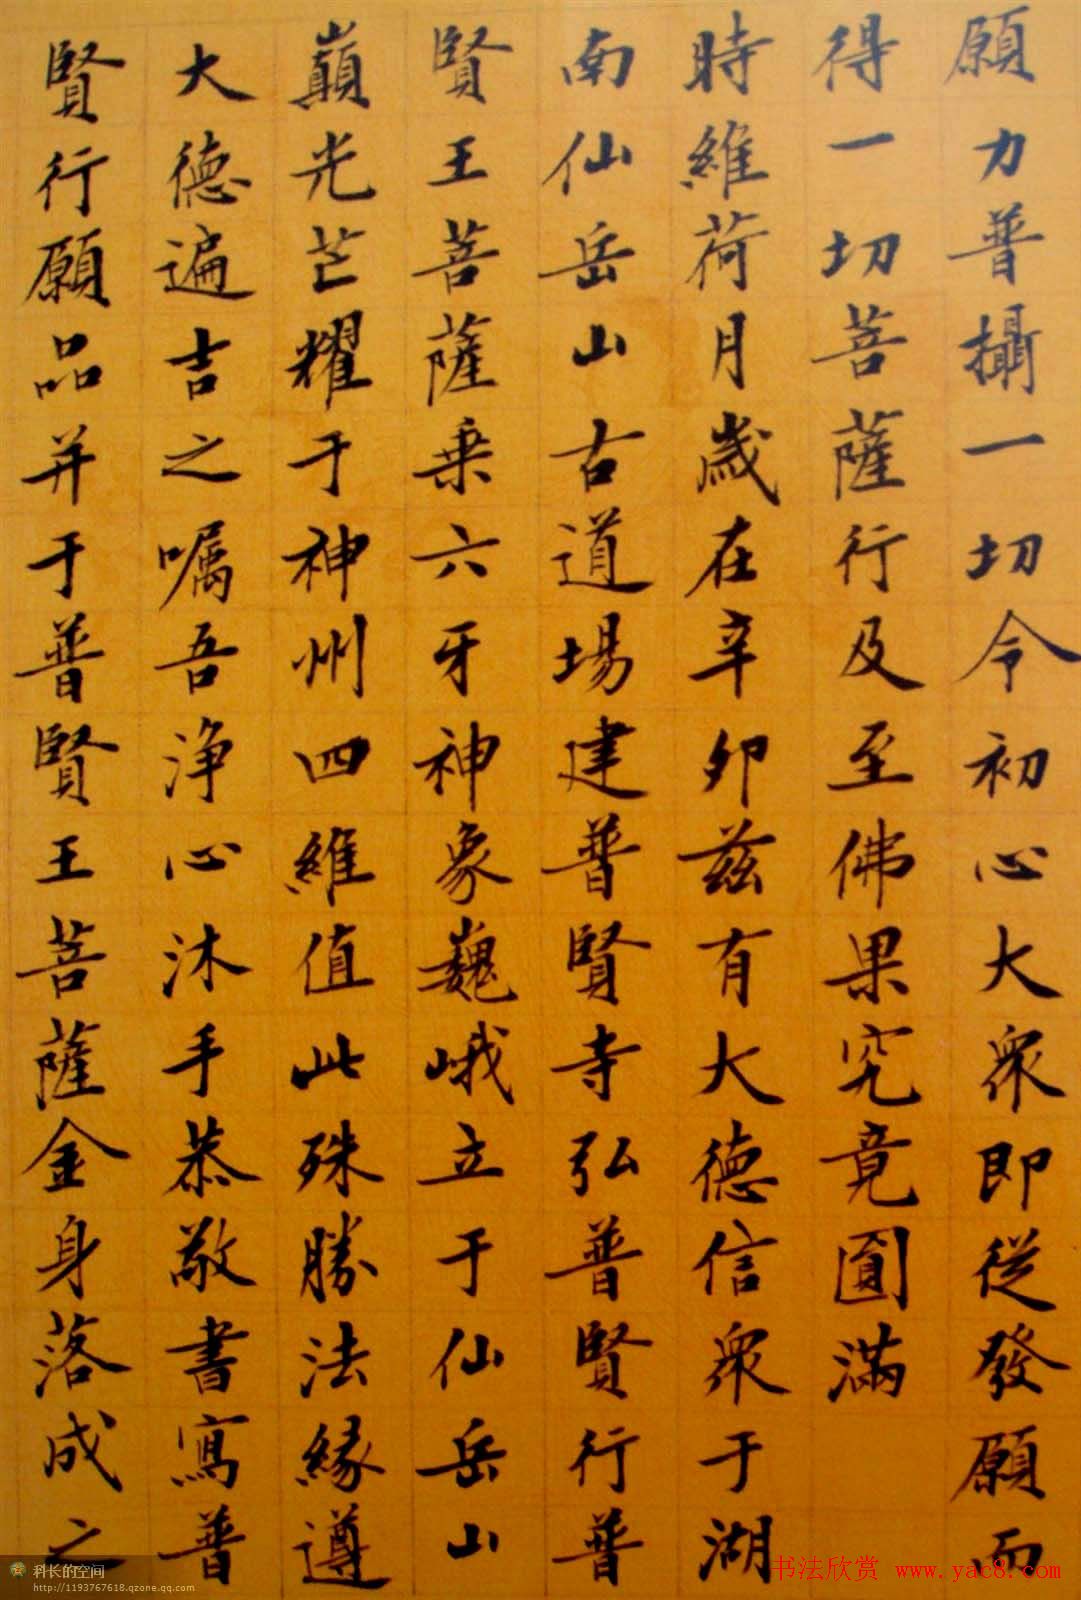 願力普攝一切令初心大衆即從發願而
得一切菩薩行及至佛果究竟圓滿
時維荷月歲在辛卯兹有大德信衆于湖
南仙岳山古道場建普賢寺弘普賢行普
賢王菩薩乗六牙神象巍峨立于仙岳山
巔光芒耀于神州四維值此殊勝法緣遵
大德遍吉之囑吾浄心沐手恭敬書寫普
賢行願品并于普賢王菩薩金身落成之
科长的空间
http://1193767618.qzone.qq.com
书法欣赏 www.yac8.com